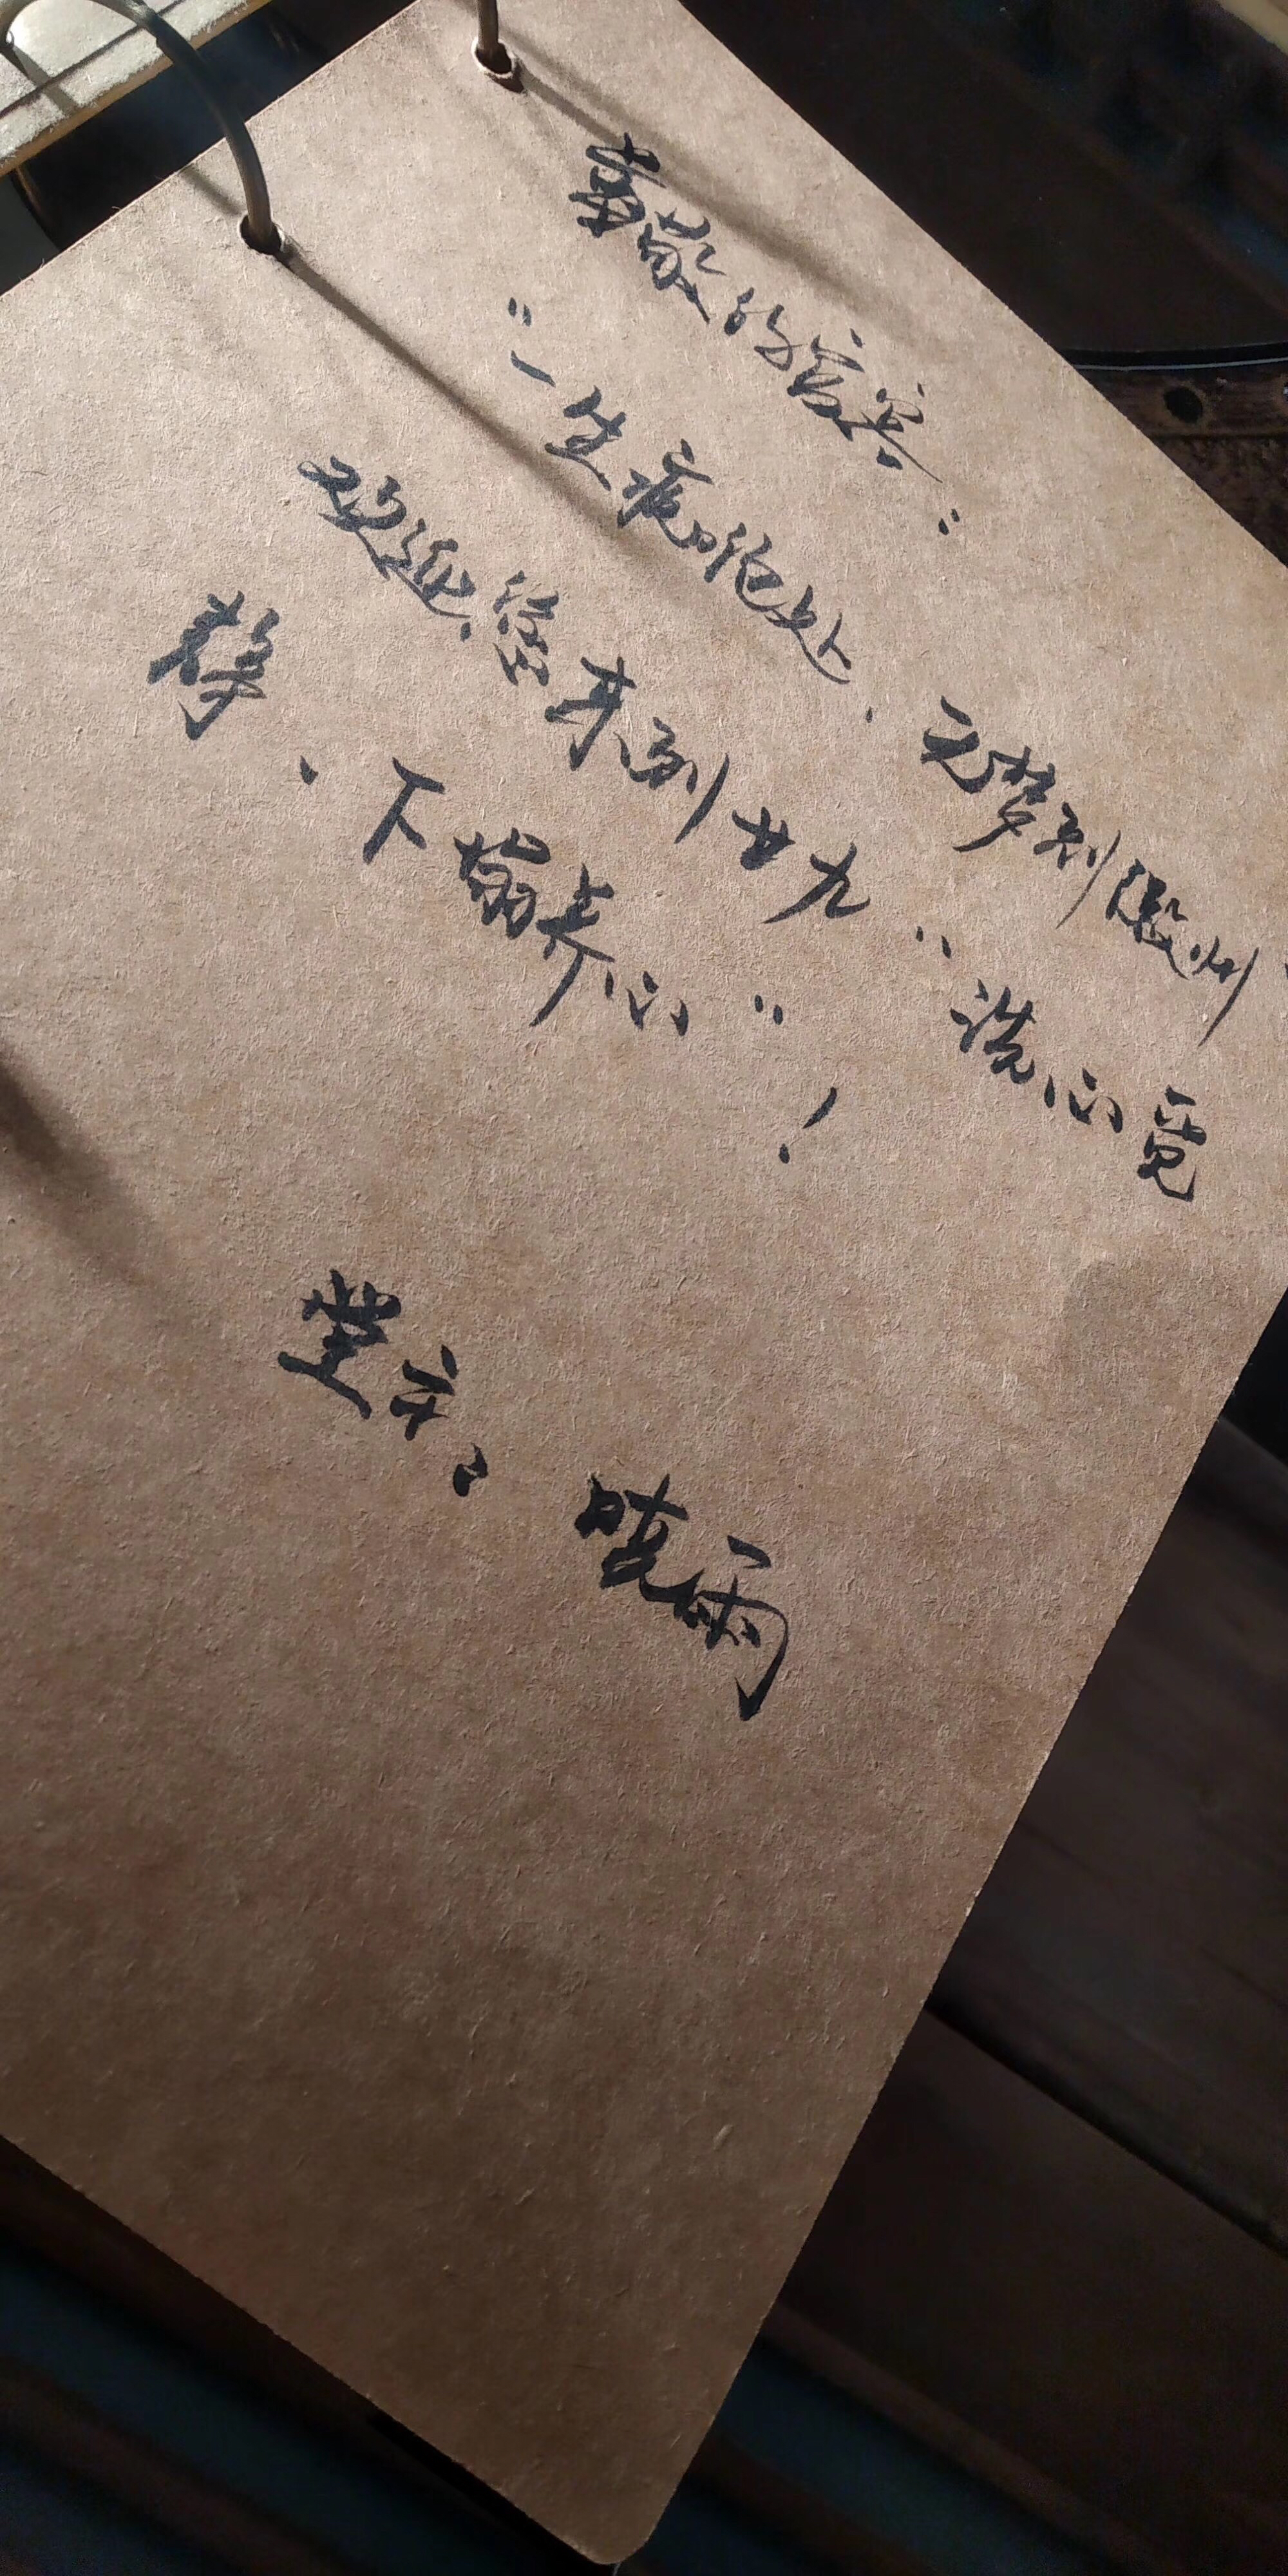 尊敬的客宾:
“一生痴绝处,无梦到徽州”
欢迎您来到廿九“洗心觅
静、下榻养心”!
堂主:晓雨